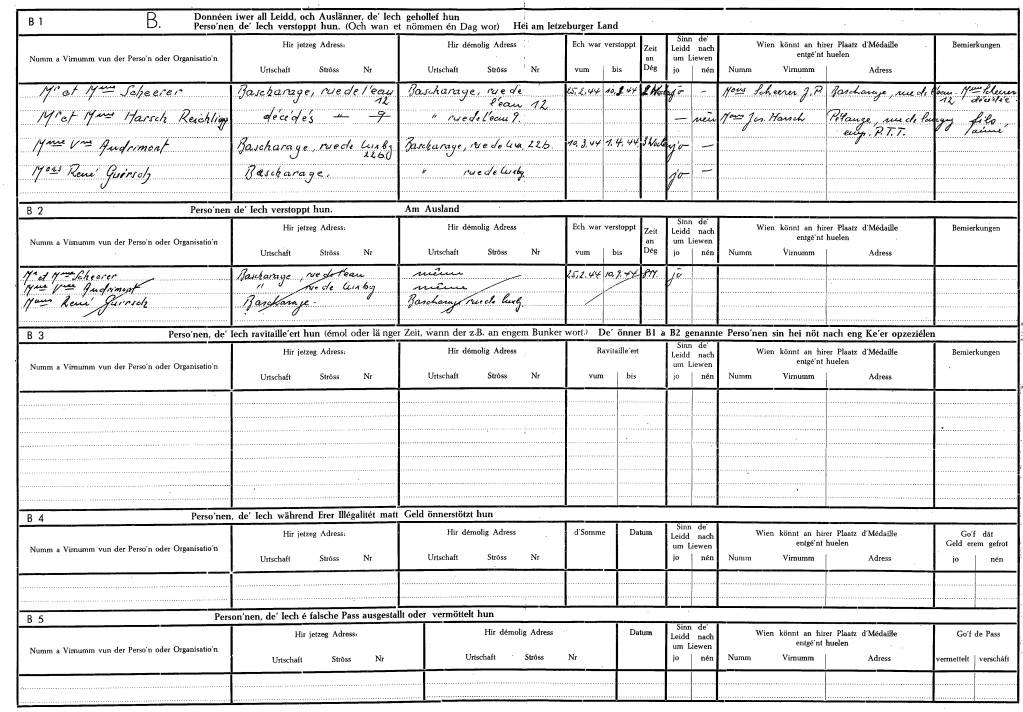 B 1 B. Donnéen iwer all Leidd, och Auslänner, de' Iech gehollef hun
Perso'nen de' Iech verstoppt hun. (Och wan et nömmen én Dag wor) Hei am letzeburger Land
Numm a Virnumm vun der Perso'n oder Organisatio'n
Hir jetzeg Adress:
Urtschaft Ströss Nr
Hir démolig Adress
Urtschaft Ströss Nr
Ech war verstoppt
vum bis
Zeit an Dég
Sinn de' Leidd nach um Liewen
jo nén
Wien könnt an hirer Plaatz d'Médaille entgé'nt huelen
Numm Virnumm Adress
Bemierkungen
Mr et Mme Scheerer Bascharage, rue de l'eau 12 Bascharage, rue de l'eau 12 25.2.44 10.9.44 jo - Mons Scheerer J.P. Bascharage, rue de l'eau 12 Mme Scheerer décédée
Mr et Mme Harsch Reichling décédés - 9 " rue de l'eau 9. - nein Mons Jos. Harsch Pétange, rue de emp. P.T.T. fils ainé
Mme Vve Audrimont Bascharage, rue de Luxbg 22b Bascharage, rue de Lux. 22b. 10.3.44 1.4.44 3 jo -
Mons René Guirsch Bascharage. " rue de Luxbg. jo -
B 2 Perso'nen de' Iech verstoppt hun. Am Ausland
Numm a Virnumm vun der Perso'n oder Organisatio'n
Hir jetzeg Adress:
Urtschaft Ströss Nr
Hir démolig Adress
Urtschaft Ströss Nr
Ech war verstoppt
vum bis
Zeit an Dég
Sinn de' Leidd nach um Liewen
jo nén
Wien könnt an hirer Plaatz d'Médaille entgé'nt huelen
Numm Virnumm Adress
Mr et Mme Scheerer Bascharage, rue de l'eau même 25.2.44 10.9.44 jo
Mme Vve Audrimont " rue de Luxbg même
Mons René Guirsch Bascharage. Bascharage rue de Luxbg.
B 3 Perso'nen, de' Iech ravitaille'ert hun (émol oder lä nger Zeit, wann der z.B. an engem Bunker wort.) De' önner B1 a B2 genannte Perso'nen sin hei nöt nach eng Ke'er opzeziélen
Numm a Virnumm vun der Perso'n oder Organisatio'n
Hir jetzeg Adress:
Urtschaft Ströss Nr
Hir démolig Adress
Urtschaft Ströss Nr
Ravitaille'ert
vum bis
Sinn de' Leidd nach um Liewen
jo nén
Wien könnt an hirer Plaatz d'Médaille entgé'nt huelen
Numm Virnumm Adress
Bemierkungen
B 4 Perso'nen, de' Iech während Erer Illégalitét matt Geld önnerstötzt hun
Numm a Virnumm vun der Perso'n oder Organisatio'n
Hir jetzeg Adress:
Urtschaft Ströss Nr
Hir démolig Adress
Urtschaft Ströss Nr
d'Somme
Datum
Sinn de' Leidd nach um Liewen
jo nén
Wien könnt an hirer Plaatz d'Médaille entgé'nt huelen
Numm Virnumm Adress
Go'f dât Geld erem gefrot
jo nén
B 5 Person'nen, de' Iech é falsche Pass ausgestallt oder vermöttelt hun
Numm a Virnumm vun der Perso'n oder Organisatio'n
Hir jetzeg Adress:
Urtschaft Ströss Nr
Hir démolig Adress
Urtschaft Ströss Nr
Datum
Sinn de' Leidd nach um Liewen
jo nén
Wien könnt an hirer Plaatz d'Médaille entgé'nt huelen
Numm Virnumm Adress
Go'f de Pass
vermettelt verschâft